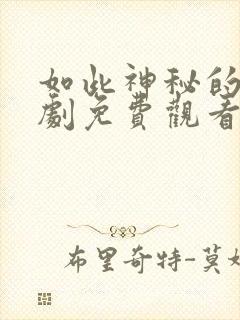 如此神秘的
劇免費觀看
布里奇特-莫